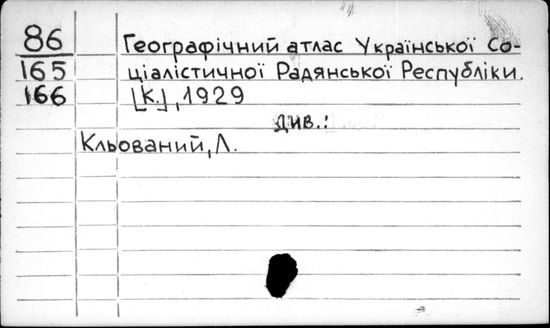 86
165
166
Географічний атлас Української Со-
ціалістичної Радянської Республіки.
[К.], 1929
див.:
Кльований, Л.